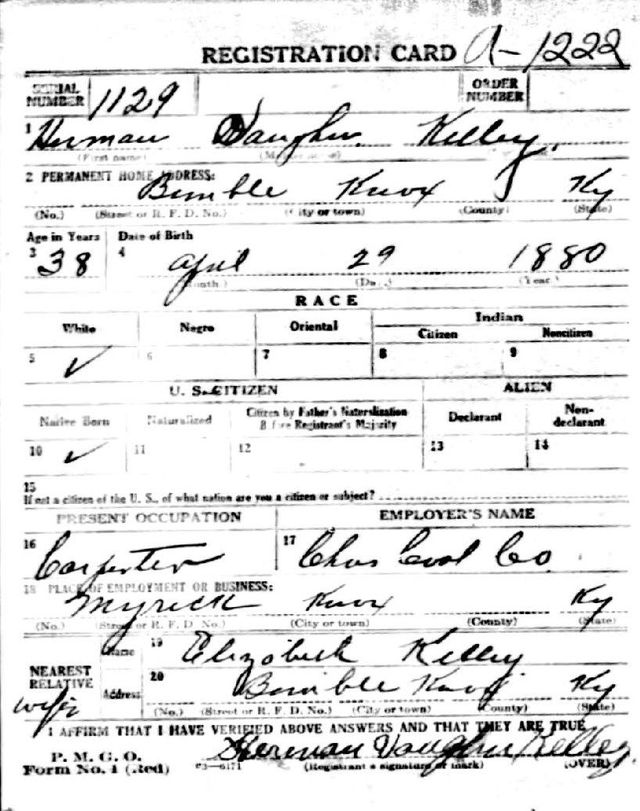 REGISTRATION CARD A-1222
SERIAL NUMBER 1129 ORDER NUMBER
1 Herman Vaughn Kelley.
(First name) (Middle name)
2 PERMANENT HOME ADDRESS:
Bimble Knox Ky
(No.) (Street or R. F. D. No.) (City or town) (County) (State)
Age in Years Date of Birth
3 38 4 April 29 1880
(Month.) (Day.) (Year.)
RACE
White Negro Oriental Indian
Citizen Noncitizen
5 ✓ 6 7 8 9
U. S. CITIZEN ALIEN
Native Born Naturalized Citizen by Father's Naturalization Before Registrant's Majority Declarant Non-declarant
10 ✓ 11 12 13 14
15
If not a citizen of the U. S., of what nation are you a citizen or subject?
PRESENT OCCUPATION EMPLOYER'S NAME
16 Carpenter 17 Chas Coal Co
18 PLACE OF EMPLOYMENT OR BUSINESS:
Myrick Knox Ky
(No.) (Street or R. F. D. No.) (City or town) (County) (State)
NEAREST RELATIVE Name 19 Elizabeth Kelley
wife Address 20 Bimble Knox Ky
(No.) (Street or R. F. D. No.) (City or town) (County) (State)
I AFFIRM THAT I HAVE VERIFIED ABOVE ANSWERS AND THAT THEY ARE TRUE
P. M. G. O.
Form No. 1 (Red) 03-6171 Herman Vaughn Kelley.
(Registrant's signature or mark) (OVER)